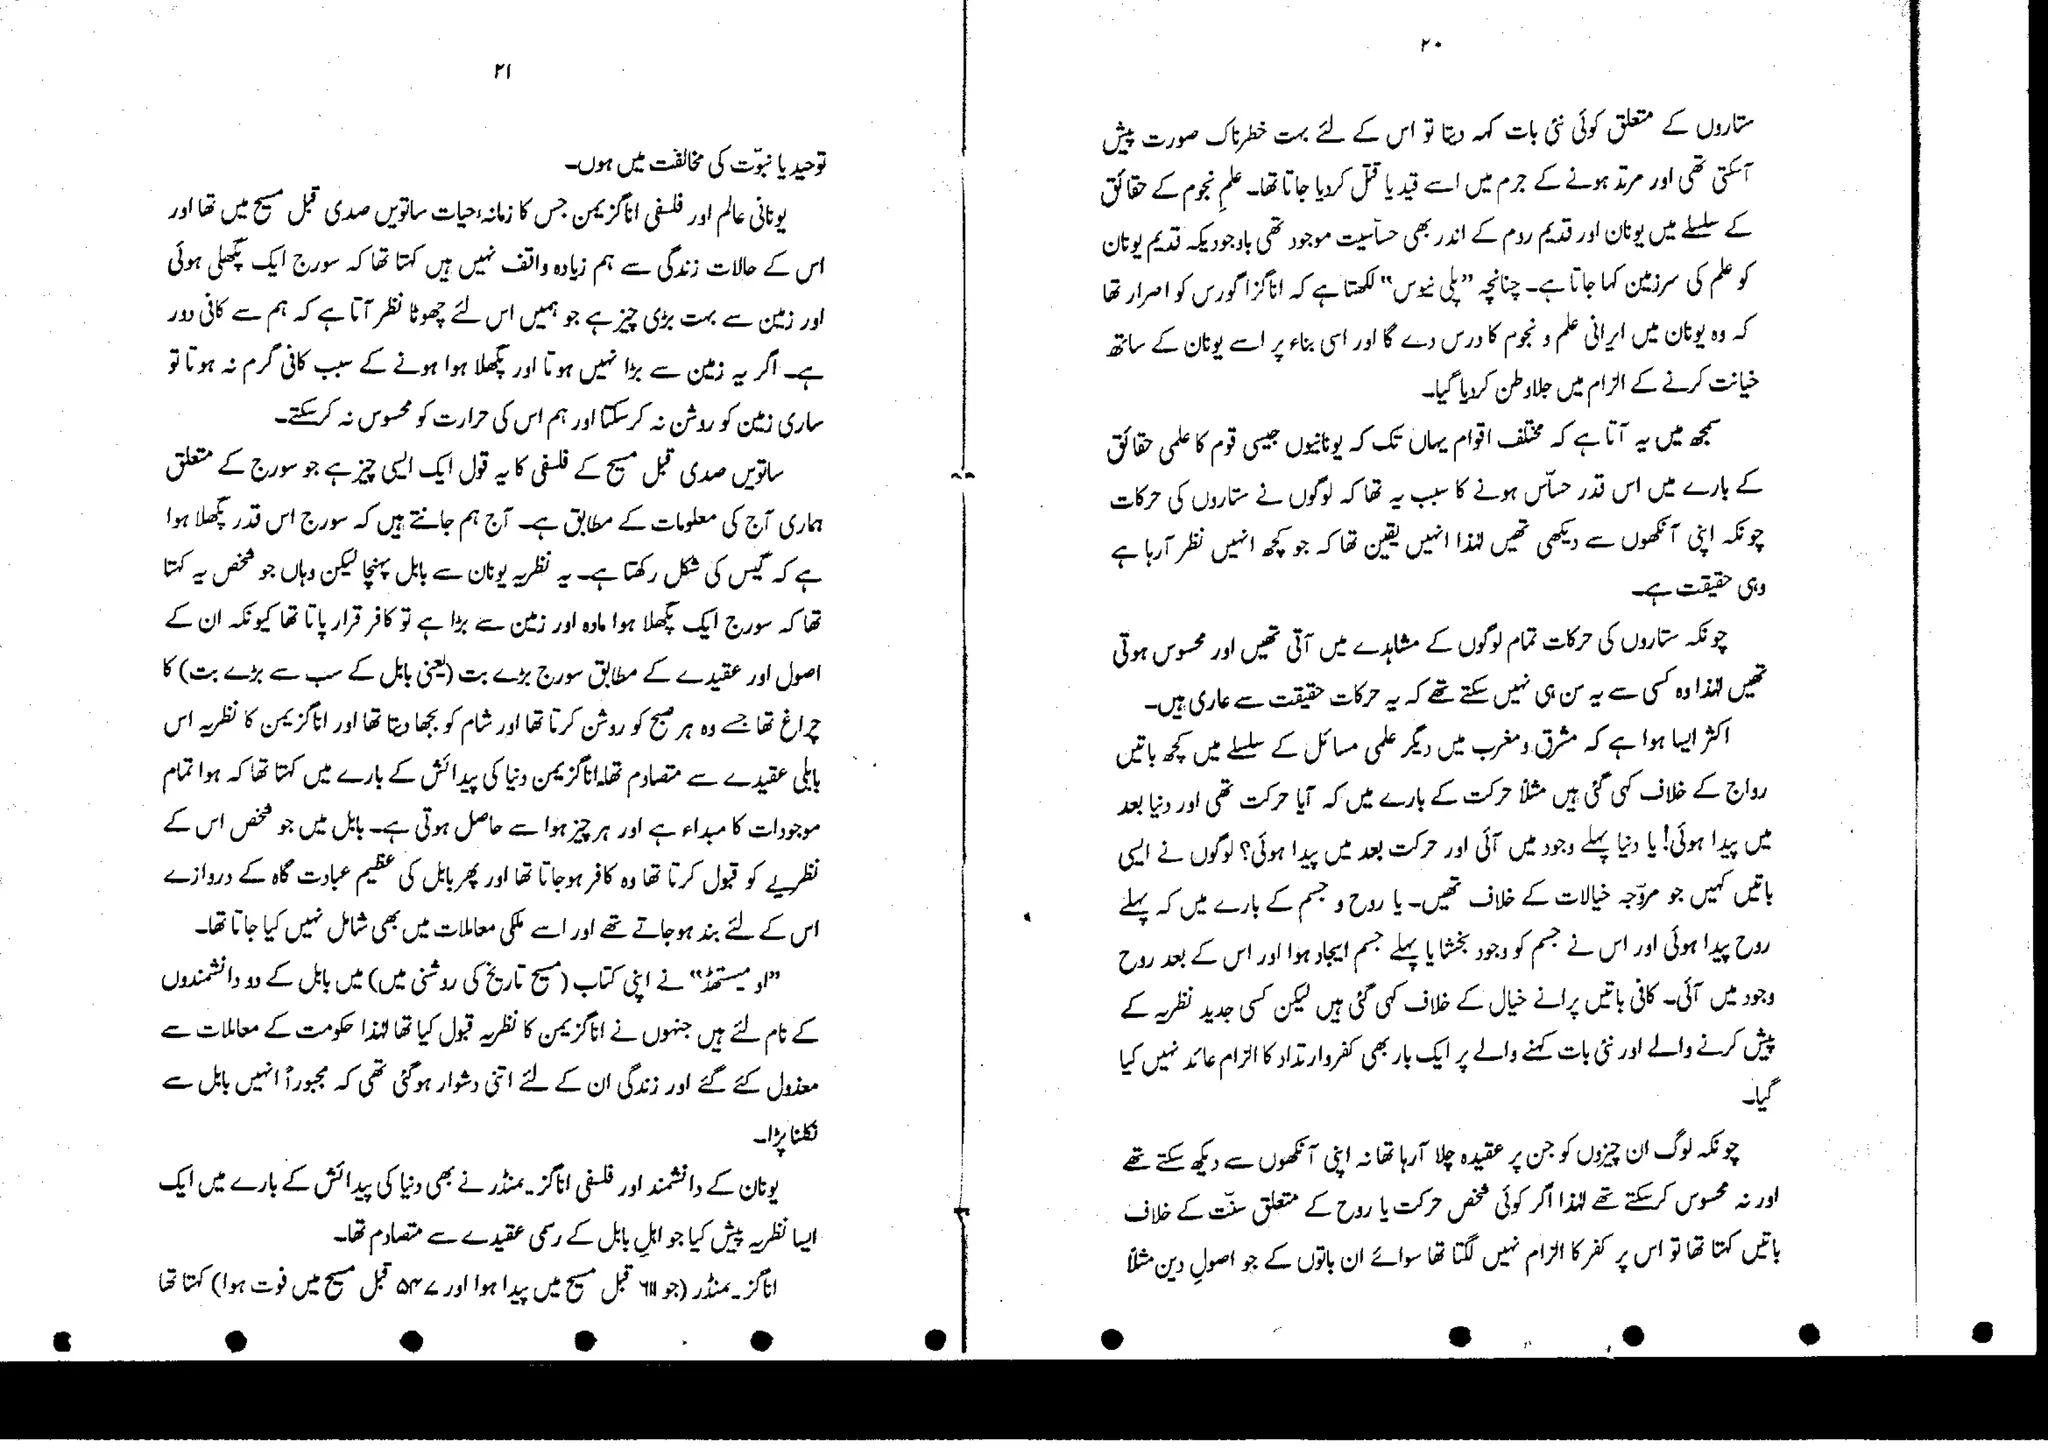 ۲۰
ستاروں کے متعلق کوئی نئی بات کہہ دیتا تو اس کے لئے بہت خطرناک صورت پیش
آسکتی تھی اور مرتد ہونے کے جرم میں اسے قید یا قتل کردیا جاتا تھا۔ علمِ نجوم کے حقائق
کے سلسلے میں یونان اور قدیم روم کے اندر بھی حساسیت موجود تھی باوجودیکہ قدیم یونان
کو علم کی سرزمین کہا جاتا ہے۔ چنانچہ ”پلی نیوس“ لکھتا ہے کہ اناگزاگورس کو اصرار تھا
کہ وہ یونان میں ایرانی علم و نجوم کا درس دے گا اور اسی بناء پر اسے یونان کے ساتھ
خیانت کرنے کے الزام میں جلاوطن کردیا گیا۔
سمجھ میں یہ آتا ہے کہ مختلف اقوام یہاں تک کہ یونانیوں جیسی قوم کا علمی حقائق
کے بارے میں اس قدر حسّاس ہونے کا سبب یہ تھا کہ لوگوں نے ستاروں کی حرکات
چونکہ اپنی آنکھوں سے دیکھی تھیں لہٰذا انہیں یقین تھا کہ جو کچھ انہیں نظر آرہا ہے
وہی حقیقت ہے۔
چونکہ ستاروں کی حرکات تمام لوگوں کے مشاہدے میں آتی تھیں اور محسوس ہوتی
تھیں لہٰذا وہ کسی سے یہ سن ہی نہیں سکتے تھے کہ یہ حرکات حقیقت سے عاری ہیں۔
اکثر ایسا ہوا ہے کہ مشرق و مغرب میں دیگر علمی مسائل کے سلسلے میں کچھ باتیں
رواج کے خلاف کہی گئی ہیں مثلاً حرکت کے بارے میں کہ آیا حرکت تھی اور دنیا بعد
میں پیدا ہوئی! یا دنیا پہلے وجود میں آئی اور حرکت بعد میں پیدا ہوئی؟ لوگوں نے ایسی
باتیں کہیں جو مروّجہ خیالات کے خلاف تھیں۔ یا روح و جسم کے بارے میں کہ پہلے
روح پیدا ہوئی اور اس نے جسم کو وجود بخشا یا پہلے جسم ایجاد ہوا اور اس کے بعد روح
وجود میں آئی۔ کافی باتیں پرانے خیال کے خلاف کہی گئی ہیں لیکن کسی جدید نظریہ کے
پیش کرنے والے اور نئی بات کہنے والے پر ایک بار بھی کفر وارتداد کا الزام عائد نہیں کیا
گیا۔
چونکہ لوگ ان چیزوں کو جن پر عقیدہ چلا آرہا تھا نہ اپنی آنکھوں سے دیکھ سکتے تھے
اور نہ محسوس کرسکتے تھے لہٰذا اگر کوئی شخص حرکت یا روح کے متعلق سنّت کے خلاف
باتیں کہتا تھا تو اس پر کفر کا الزام نہیں لگتا تھا سوائے ان باتوں کے جو اصولِ دین مثلاً
۲۱
توحید یا نبوّت کی مخالفت میں ہوں۔
یونانی عالم اور فلسفی اناگزیمن جس کا زمانہٴ حیات ساتویں صدی قبل مسیح میں تھا اور
اس کے حالات زندگی سے ہم زیادہ واقف نہیں ہیں کہتا تھا کہ سورج ایک پگھلی ہوئی
اور زمین سے بہت بڑی چیز ہے جو ہمیں اس لئے چھوٹا نظر آتا ہے کہ ہم سے کافی دور
ہے۔ اگر یہ زمین سے بڑا نہیں ہوتا اور پگھلا ہوا ہونے کے سبب کافی گرم نہ ہوتا تو
ساری زمین کو روشن نہ کرسکتا اور ہم اس کی حرارت کو محسوس نہ کرسکتے۔
ساتویں صدی قبل مسیح کے فلسفی کا یہ قول ایک ایسی چیز ہے جو سورج کے متعلق
ہماری آج کی معلومات کے مطابق ہے۔ آج ہم جانتے ہیں کہ سورج اس قدر پگھلا ہوا
ہے کہ گیس کی شکل رکھتا ہے۔ یہ نظریہ یونان سے بابل پہنچا لیکن وہاں جو شخص یہ کہتا
تھا کہ سورج ایک پگھلا ہوا مادہ اور زمین سے بڑا ہے تو کافر قرار پاتا تھا کیونکہ ان کے
اصول اور عقیدے کے مطابق سورج بڑے بت (یعنی بابل کے سب سے بڑے بت) کا
چراغ تھا جسے وہ ہر صبح کو روشن کرتا تھا اور شام کو بجھا دیتا تھا اور اناگزیمن کا نظریہ اس
بابلی عقیدے سے متصادم تھا۔ اناگزیمن دنیا کی پیدائش کے بارے میں کہتا تھا کہ ہوا تمام
موجودات کا مبداء ہے اور ہر چیز ہوا سے حاصل ہوتی ہے۔ بابل میں جو شخص اس کے
نظریے کو قبول کرتا تھا وہ کافر ہوجاتا تھا اور پھر بابل کی عظیم عبادت گاہ کے دروازے
اس کے لئے بند ہوجاتے تھے اور اسے ملکی معاملات میں بھی شامل نہیں کیا جاتا تھا۔
”او مستھڈ“ نے اپنی کتاب (مسیح تاریخ کی روشنی میں) میں بابل کے دو دانشمندوں
کے نام لئے ہیں جنہوں نے اناگزیمن کا نظریہ قبول کیا تھا لہٰذا حکومت کے معاملات سے
معذول کئے گئے اور زندگی ان کے لئے اتنی دشوار ہوگئی تھی کہ مجبوراً انہیں بابل سے
نکلنا پڑا۔
یونان کے دانشمند اور فلسفی اناگز۔ یمنڈر نے بھی دنیا کی پیدائش کے بارے میں ایک
ایسا نظریہ پیش کیا جو اہلِ بابل کے رسمی عقیدے سے متصادم تھا۔
اناگز۔ یمنڈر (جو ۶۱۱ قبل مسیح میں پیدا ہوا اور ۵۴۷ قبل مسیح میں فوت ہوا) کہتا تھا